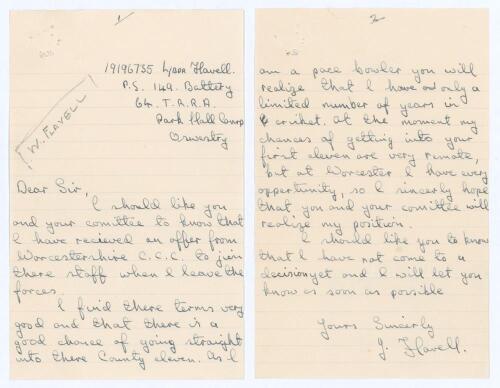 1
19196735 L/BDR Flavell.
P.S. 149. Battery
64. T.A.R.A.
Park Hall Camp
Oswestry
W. FLAVELL
Dear Sir,
I should like you
and your comittee to know that
I have recieved an offer from
Worcestershire C.C.C. to join
there staff when I leave the
forces.
I find there terms very
good and that there is a
good chance of going straight
into there County eleven. As I
2
am a pace bowler you will
realize that I have only a
limited number of years in
cricket. At the moment my
chances of getting into your
first eleven are very remote,
but at Worcester I have every
opportunity, so I sincerly hope
that you and your comittee will
realize my position.
I should like you to know
that I have not come to a
decision yet and I will let you
know as soon as possible
Yours Sincerly
J. Flavell.